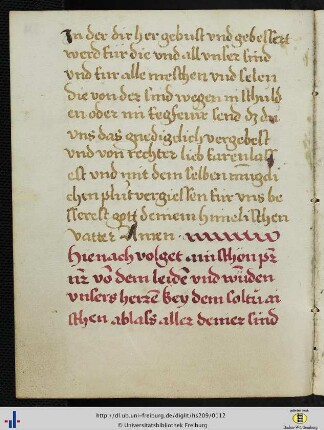 In der dir her gebust vnd gebessert
werd fur die vnd all vnser sind
vnd fur alle meschen vnd selen
die von der sind wegen in schuld
en oder im fegfeuir send dz du
vns das gnedigclich vergebest
vnd von rechter lieb farenlass
est vnd mit dem selben
chen plut vergiessen fur vns be
sserest gott deinem himelischen
vatter Amen
Hienach volget ain schon
vo dem leiden vnd wunden
vnsers herze bey dem
schen ablass aller deiner sind
http://dl.ub.uni-freiburg.de/diglit/hs209/0112
© Universitätsbibliothek Freiburg